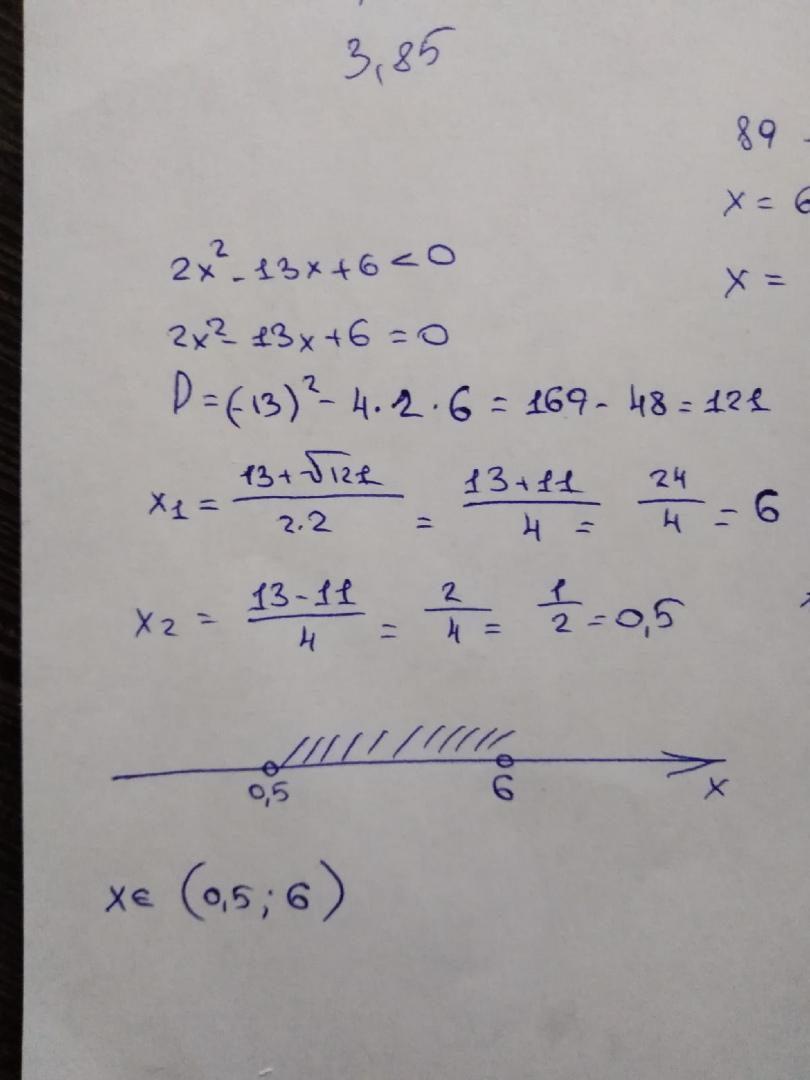 3,85
89 -
x = 6
x =
2x² - 13x + 6 < 0
2x² - 13x + 6 = 0
D = (-13)² - 4 · 2 · 6 = 169 - 48 = 121
x₁ = (13 + √121)/(2·2) = (13 + 11)/4 = 24/4 = 6
x₂ = (13 - 11)/4 = 2/4 = 1/2 = 0,5
0,5 6 x
x ∈ (0,5; 6)